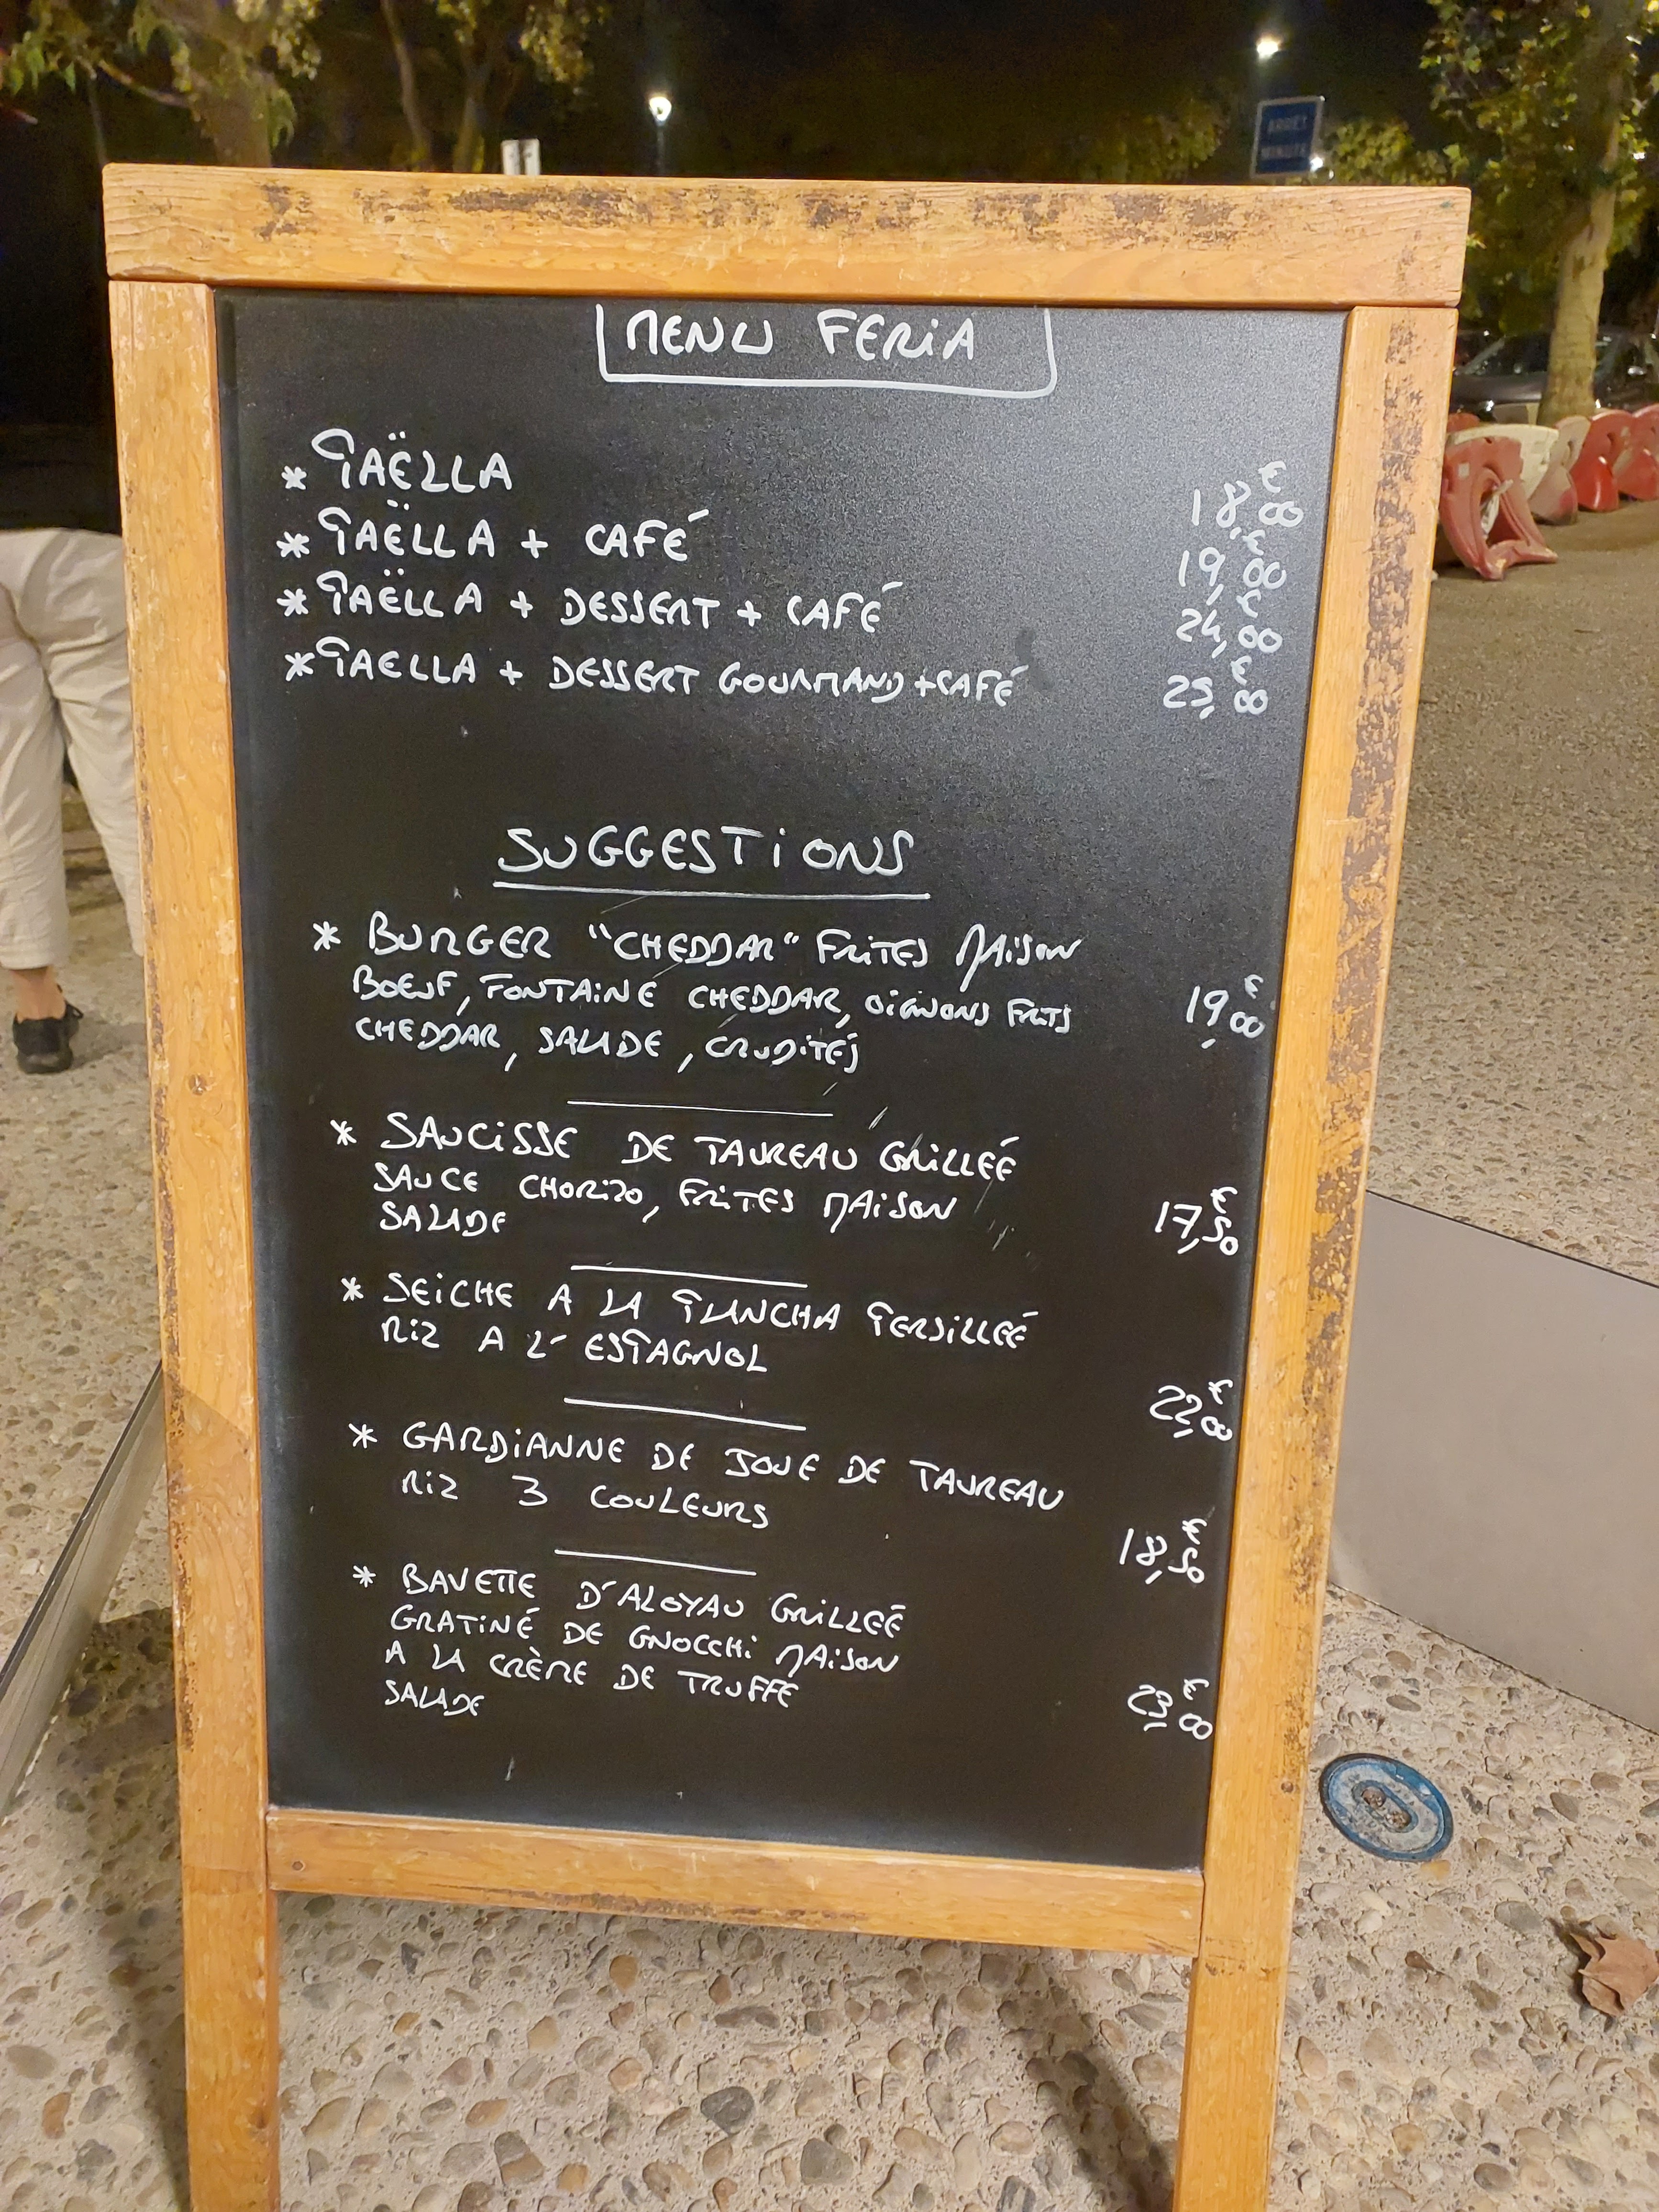 ARRET
MINUTE
MENU FERIA
* PAËLLA 18,€00
* PAËLLA + CAFÉ 19,€00
* PAËLLA + DESSERT + CAFÉ 24,€00
* PAELLA + DESSERT GOURMAND + CAFÉ 25,€00
SUGGESTIONS
* BURGER "CHEDDAR" FRITES MAISON
BOEUF, FONTAINE CHEDDAR, OIGNONS FRITS 19,€00
CHEDDAR, SALADE, CRUDITÉS
* SAUCISSE DE TAUREAU GRILLEÉ
SAUCE CHORIZO, FRITES MAISON 17,€50
SALADE
* SEICHE A LA PLANCHA PERSILLEÉ
RIZ A L'ESPAGNOL
22,€00
* GARDIANNE DE JOUE DE TAUREAU
RIZ 3 COULEURS
18,€50
* BAVETTE D'ALOYAU GRILLEÉ
GRATINÉ DE GNOCCHI MAISON
A LA CRÈME DE TRUFFE
SALADE 23,€00